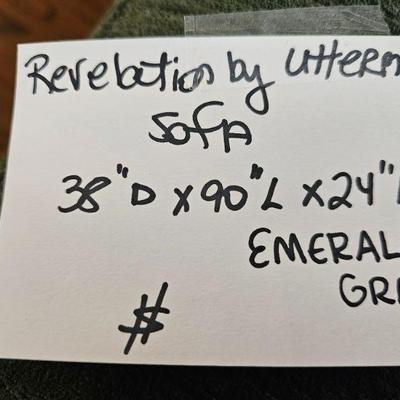 Revelation by Utterm
Sofa
38"D x 90"L x 24"
EMERAL
GR
$